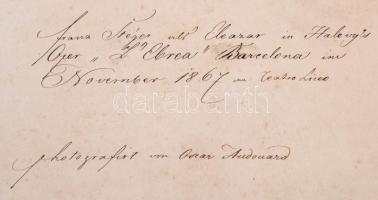 Franz Stéger als Eleazar in Halevy's
Oper „L'Ebrea" Barcelona im
November 1867 im Teatro Liceo
photografirt von Oscar Audouard
darabanth